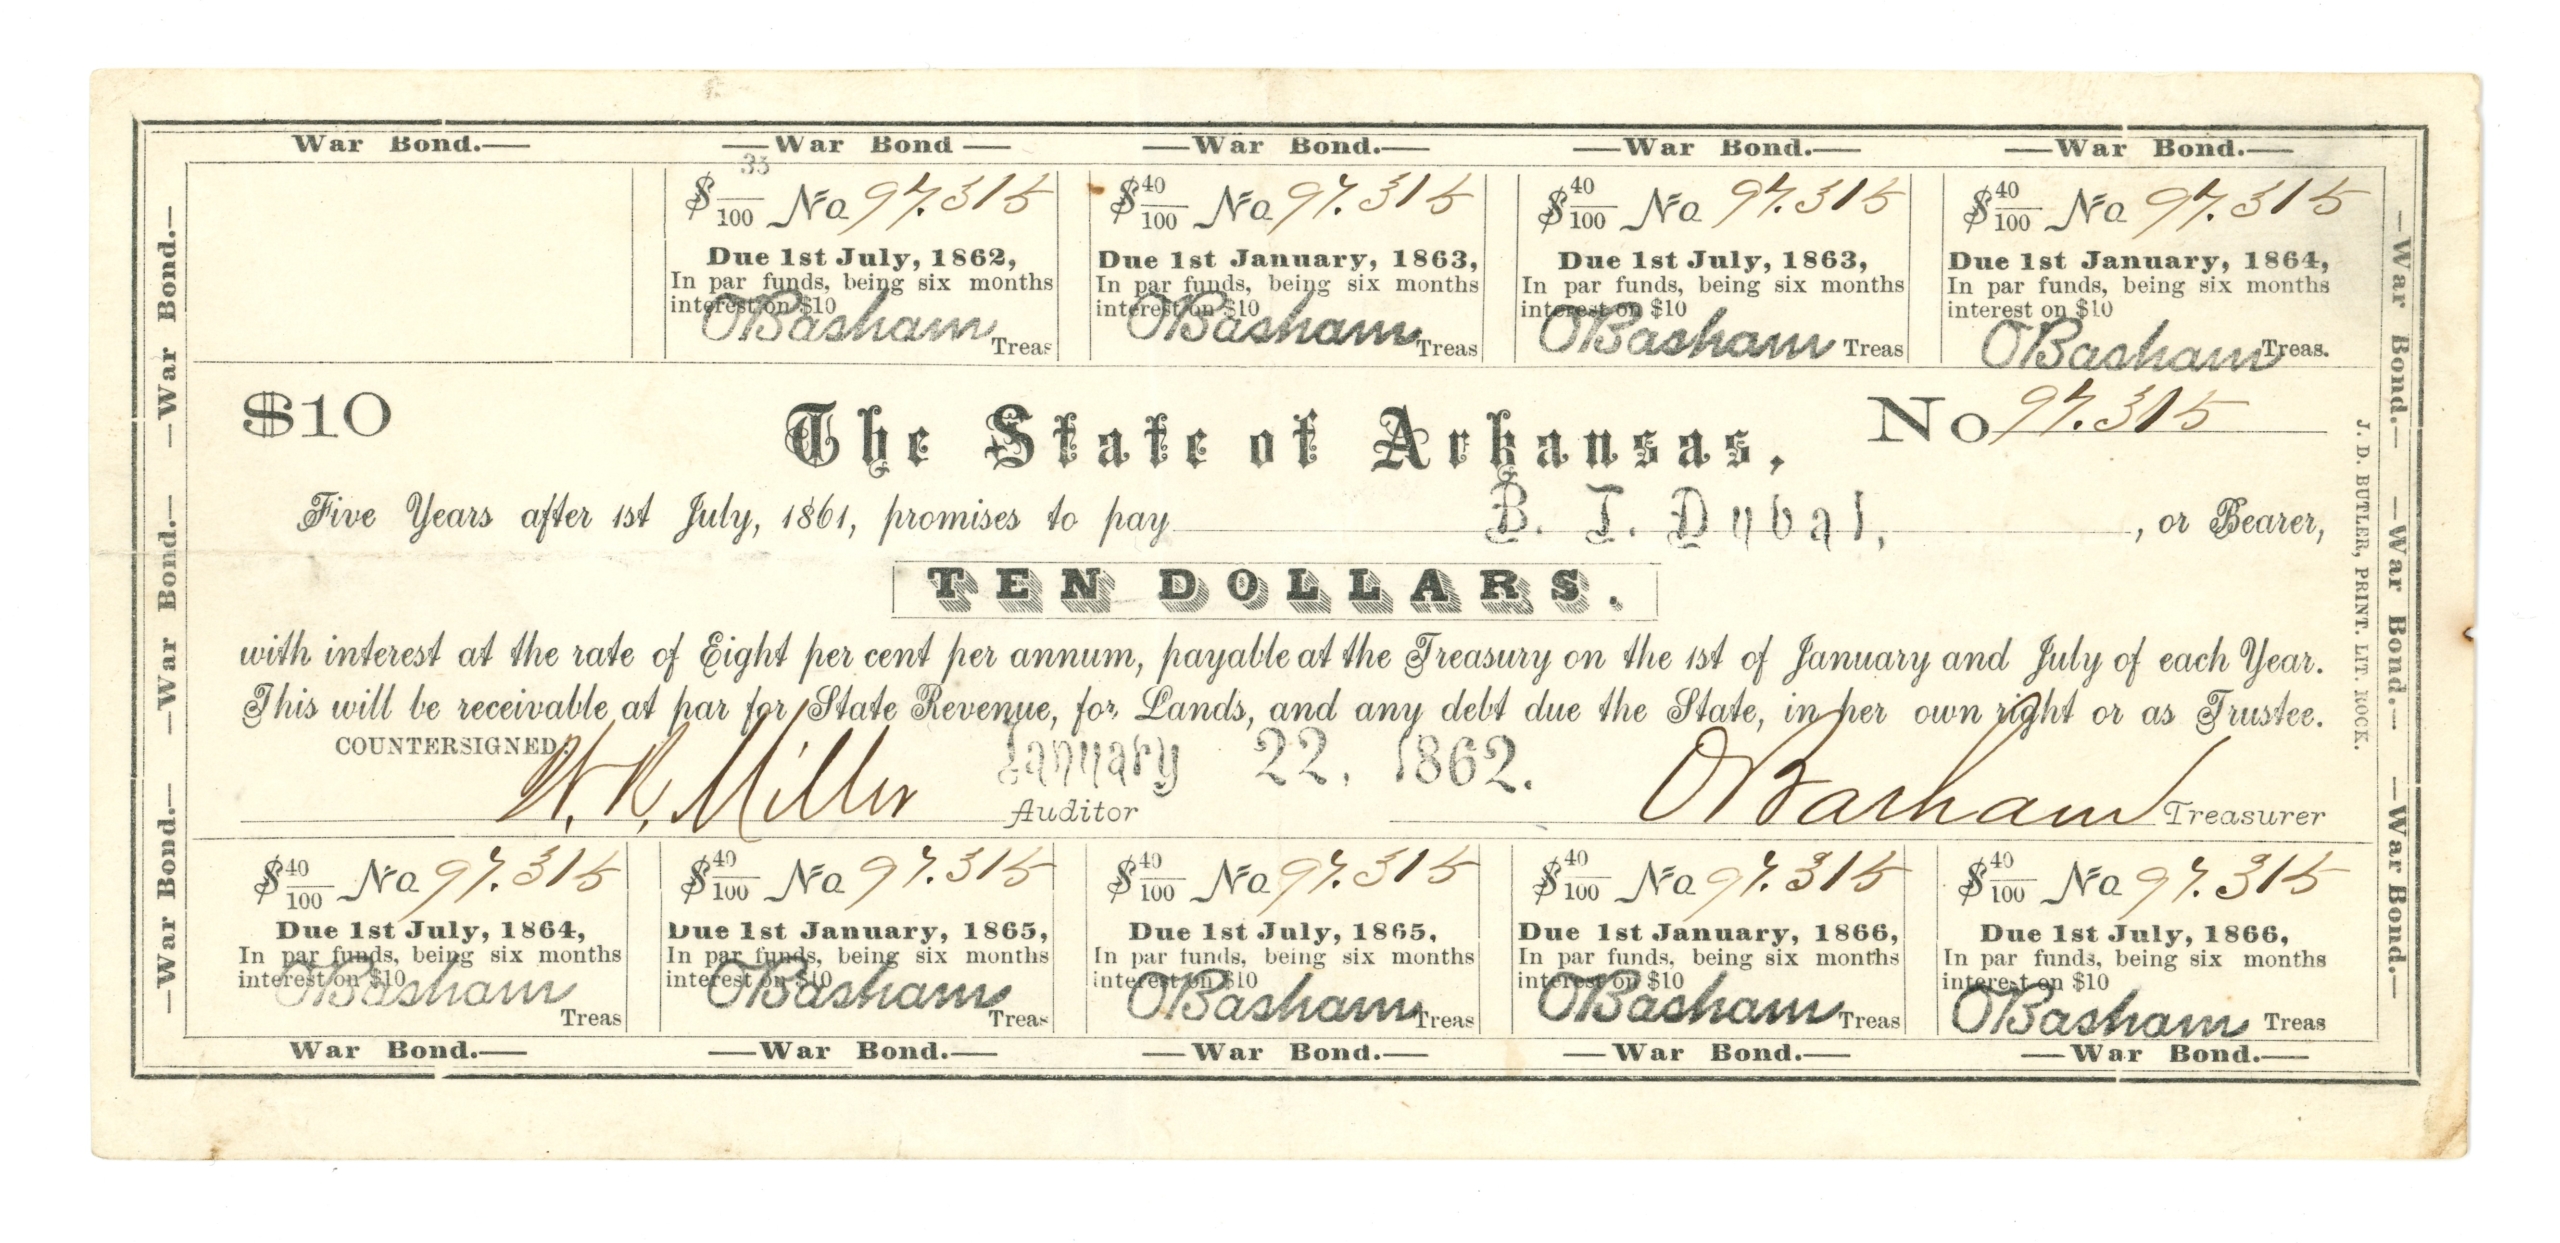 War Bond.— —War Bond — —War Bond.— —War Bond.— —War Bond.—
$35/100 No 97.315
Due 1st July, 1862,
In par funds, being six months
interest on $10
OBasham Treas
$40/100 No 97.315
Due 1st January, 1863,
In par funds, being six months
interest on $10
OBasham Treas
$40/100 No 97.315
Due 1st July, 1863,
In par funds, being six months
interest on $10
OBasham Treas
$40/100 No 97.315
Due 1st January, 1864,
In par funds, being six months
interest on $10
OBasham Treas.
$10 The State of Arkansas, No 97.315
Five Years after 1st July, 1861, promises to pay B. T. Duval, , or Bearer,
TEN DOLLARS.
with interest at the rate of Eight per cent per annum, payable at the Treasury on the 1st of January and July of each Year.
This will be receivable at par for State Revenue, for Lands, and any debt due the State, in her own right or as Trustee.
COUNTERSIGNED,
January 22, 1862.
W. R. Miller Auditor OBasham Treasurer
$40/100 No 97.315
Due 1st July, 1864,
In par funds, being six months
interest on $10
OBasham
Treas
$40/100 No 97.315
Due 1st January, 1865,
In par funds, being six months
interest on $10
OBasham
Treas
$40/100 No 97.315
Due 1st July, 1865,
In par funds, being six months
interest on $10
OBasham Treas
$40/100 No 97.315
Due 1st January, 1866,
In par funds, being six months
interest on $10
OBasham Treas
$40/100 No 97.315
Due 1st July, 1866,
In par funds, being six months
interest on $10
OBasham Treas
War Bond.— —War Bond.— —War Bond.— —War Bond.— —War Bond.—
—War Bond.— —War Bond.— —War Bond.—
—War Bond.— —War Bond.— —War Bond.—
J. D. BUTLER, PRINT. LIT. ROCK.